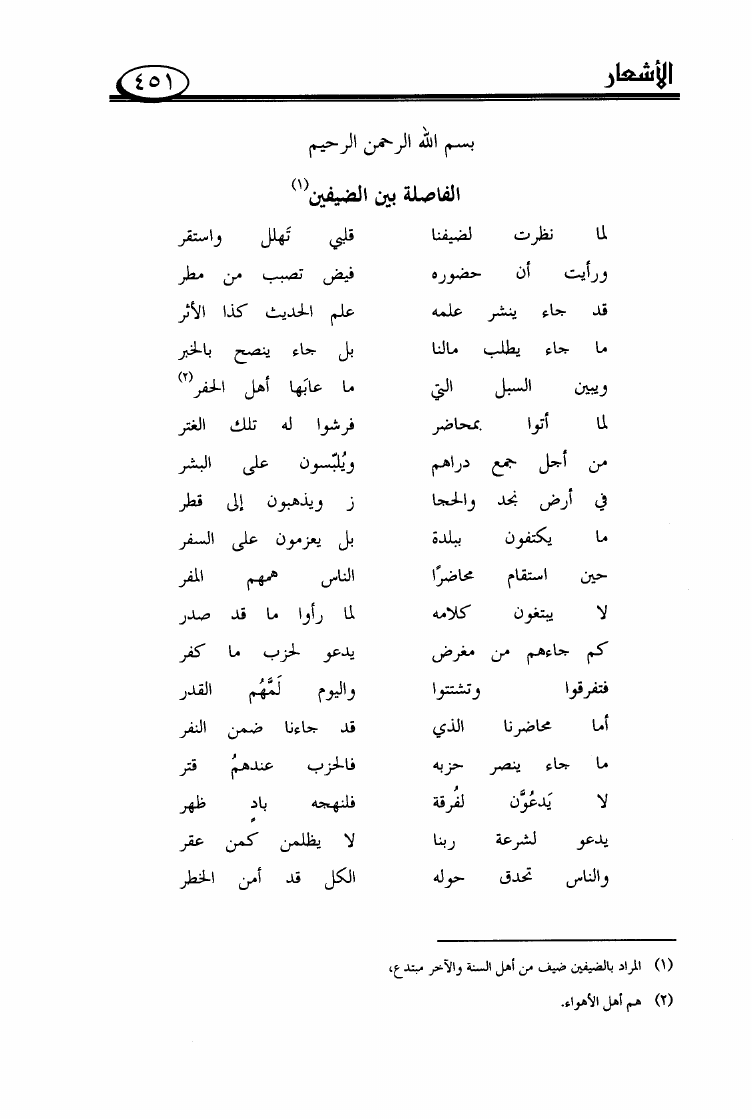 الأشعار ٤٥١
بسم الله الرحمن الرحيم
الفاصلة بين الضيفين(١)
لما نظرت لضيفنا قلبي تَهلل واستقر
ورأيت أن حضوره فيض تصبب من مطر
قد جاء ينشر علمه علم الحديث كذا الأثر
ما جاء يطلب مالنا بل جاء ينصح بالخبر
ويبين السبل التي ما عابَها أهل الحفر(٢)
لما أتوا بمحاضر فرشوا له تلك الغتر
من أجل جمع دراهم ويُلبّسون على البشر
في أرض نجد والحجا ز ويذهبون إلى قطر
ما يكتفون ببلدة بل يعزمون على السفر
حين استقام محاضرًا الناس همهم المفر
لا يبتغون كلامه لما رأوا ما قد صدر
كم جاءهم من مغرض يدعو لحزب ما كفر
فتفرقوا وتشتتوا واليوم لَمَّهُم القدر
أما محاضرنا الذي قد جاءنا ضمن النفر
ما جاء ينصر حزبه فالحزب عندهمُ قتر
لا يَدعُوَّن لفُرقة فلنهجه بادٍ ظهر
يدعو لشرعة ربنا لا يظلمن كمن عقر
والناس تحدق حوله الكل قد أمن الخطر
(١) المراد بالضيفين ضيف من أهل السنة والآخر مبتدع،
(٢) هم أهل الأهواء.